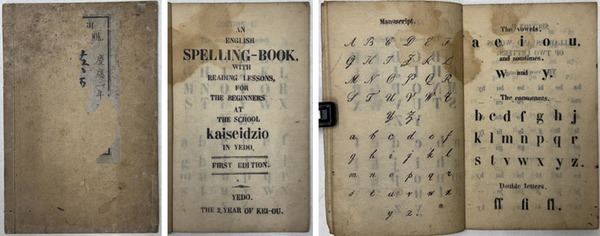 AN
ENGLISH
SPELLING-BOOK,
WITH
READING LESSONS,
FOR
THE BEGINNERS
AT
THE SCHOOL
kaiseidzio
IN YEDO.
FIRST EDITION.
YEDO.
THE 2, YEAR OF KEI-OU.
Manuscript.
A B C D E F
G H I J K L
M N O P Q R
S T U V W X
Y Z.
a b c d e f
g h i j k l
m n o p q r
s t u v w x
y z.
The vowels.
a e i o u.
and sometimes.
w and y.
The consonants.
b c d f g h j
k l m n p q r
s t v w x y z.
Double letters.
ff fi fl.